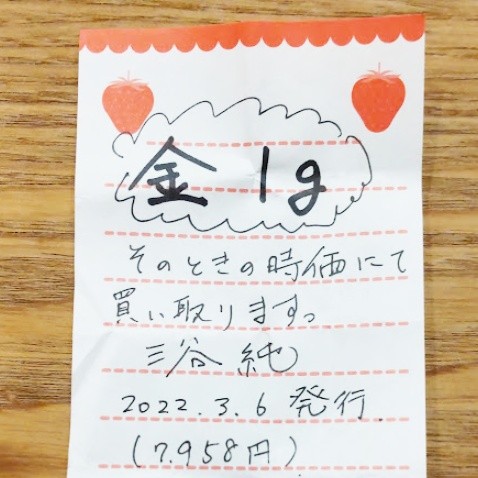 金 1g
そのときの時価にて
買い取ります。
三谷 純
2022.3.6 発行
(7,958円)